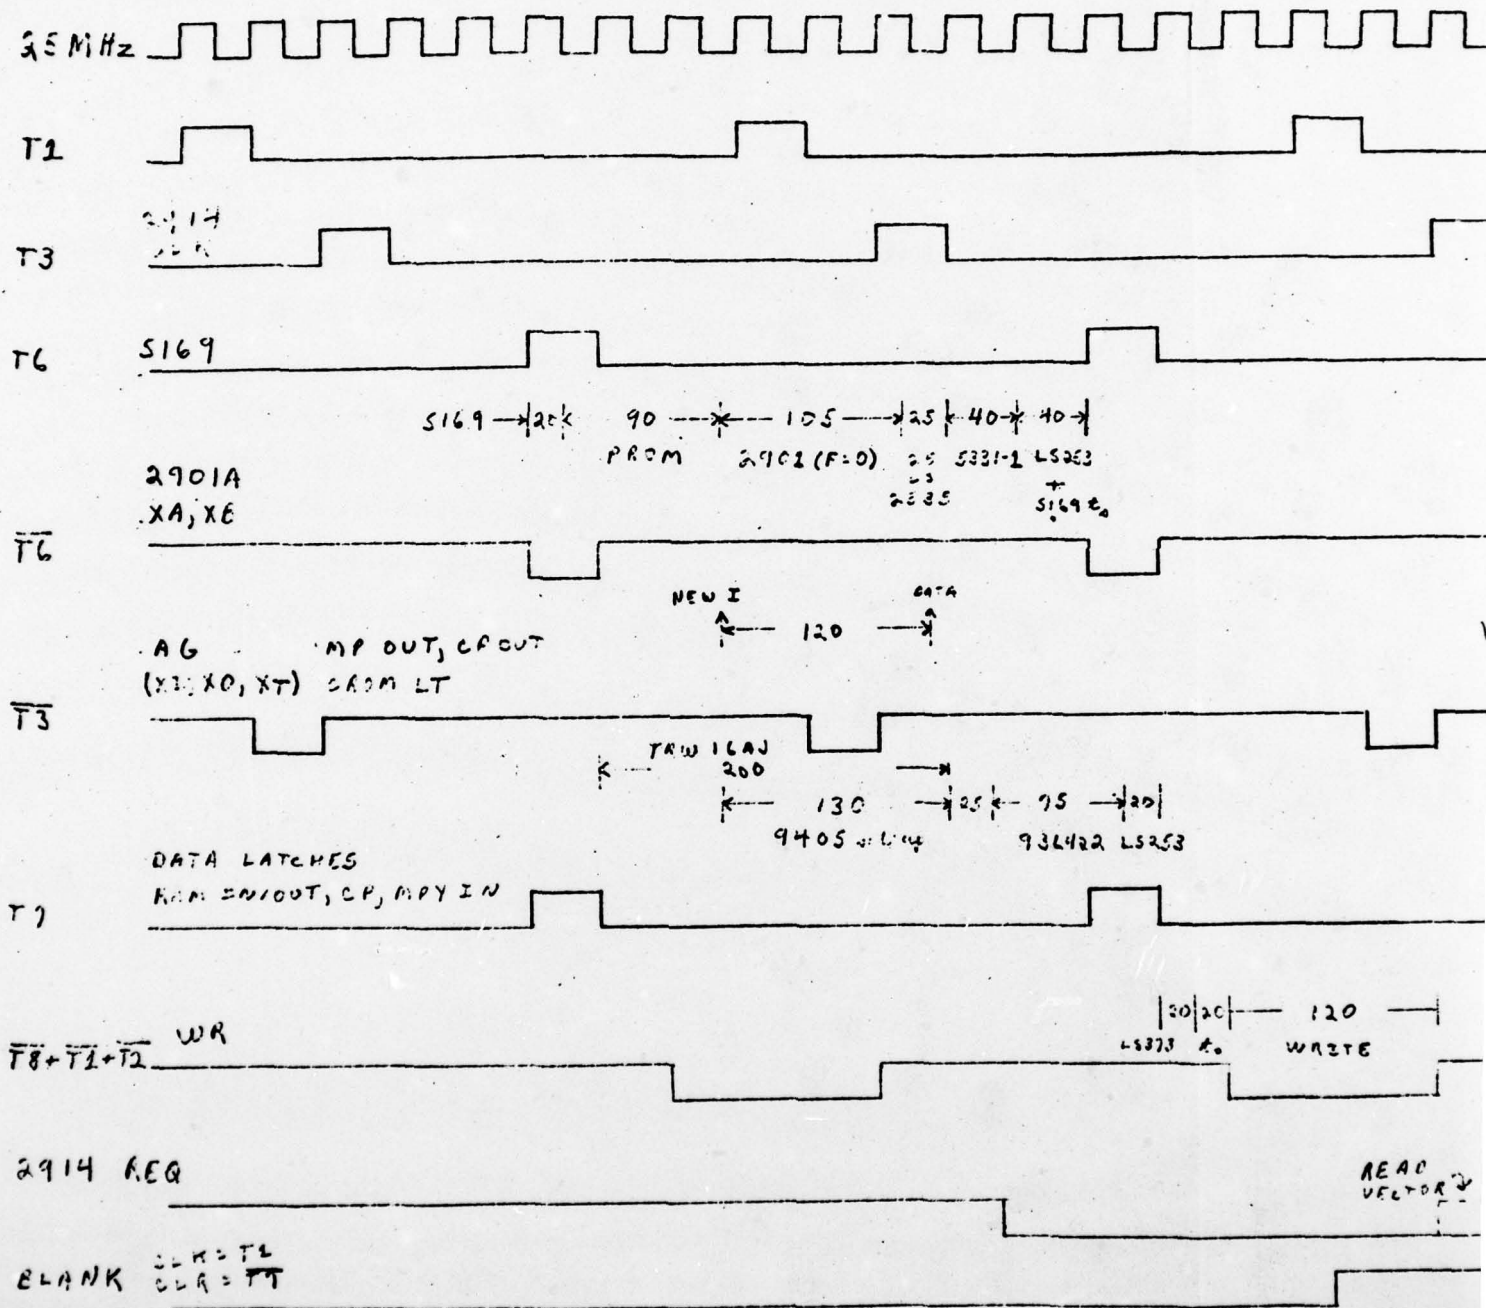 25 MHz
T1
2914
CLK
T3
T6 S169
S169 20 90 105 25 40 40
PROM 2901 (F=0) 25 5331-1 LS253
LS +
2535 S169 ts
2901A
XA, XB
T6
NEW I DATA
120
AG MP OUT, CP OUT
(XI, XO, XT) CROM LT
T3
TRW 16AJ
200
130 25 75 20
9405 93L422 LS253
DATA LATCHES
RAM IN/OUT, CP, MPY IN
T7
20 20 120
WR
LS373 WRITE
T8+T1+T2
2914 REQ
READ
VECTOR
CLK = T1
BLANK CLR = T7